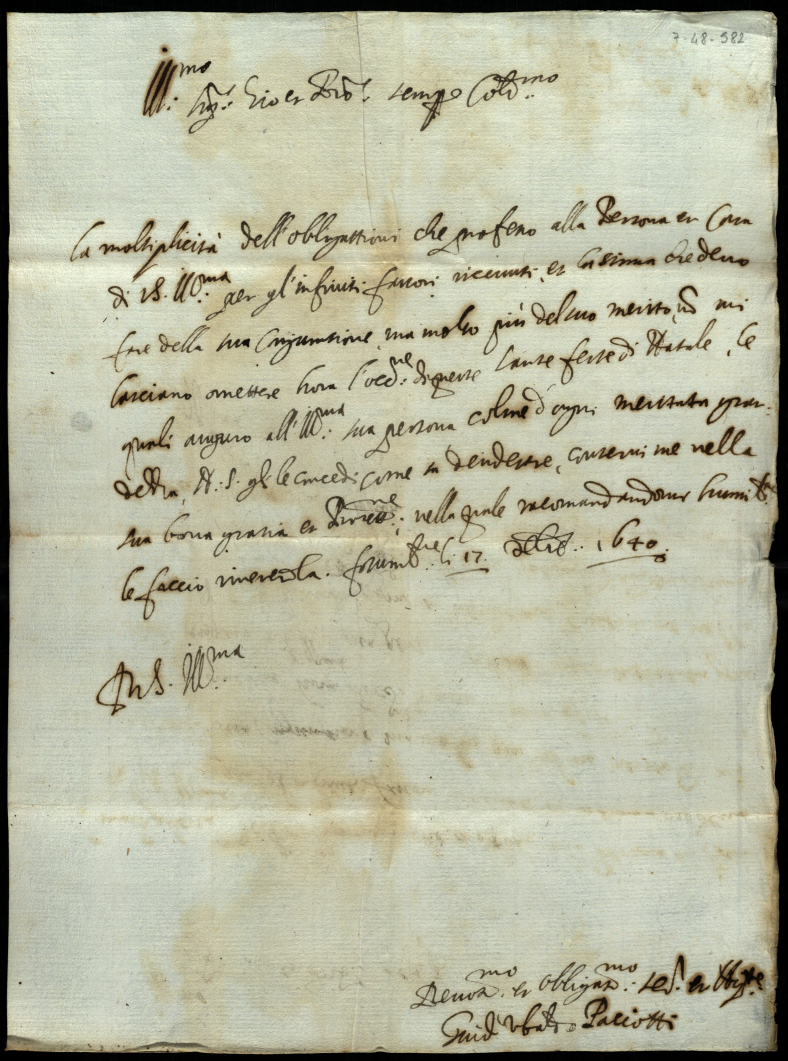 7-48-582
Ill.mo Sig.r Zio et Pron. sempre Col.mo
La moltiplicità dell'obligattioni che professo alla Persona et Casa
di V.S. Ill.ma per gl'infiniti favori ricevuti, et la stima che devo
fare della sua, ma molto più del suo merito, no mi
lasciano omettere hora l'occ.ne di queste sante feste di Natale, le
quali auguro all'Ill.ma sua persona colme d'ogni meritata gran=
dezza, N. S. gli le concedi come si, conservi me nella
sua bona gratia et Protet.ne; nella quale racomandandomi humil.te
le faccio riverenza. li 17 Xbre. 1640.
Di V.S. Ill.ma
Devot.mo et obligat.mo ser. et
Guid'Ubaldo Paciotti